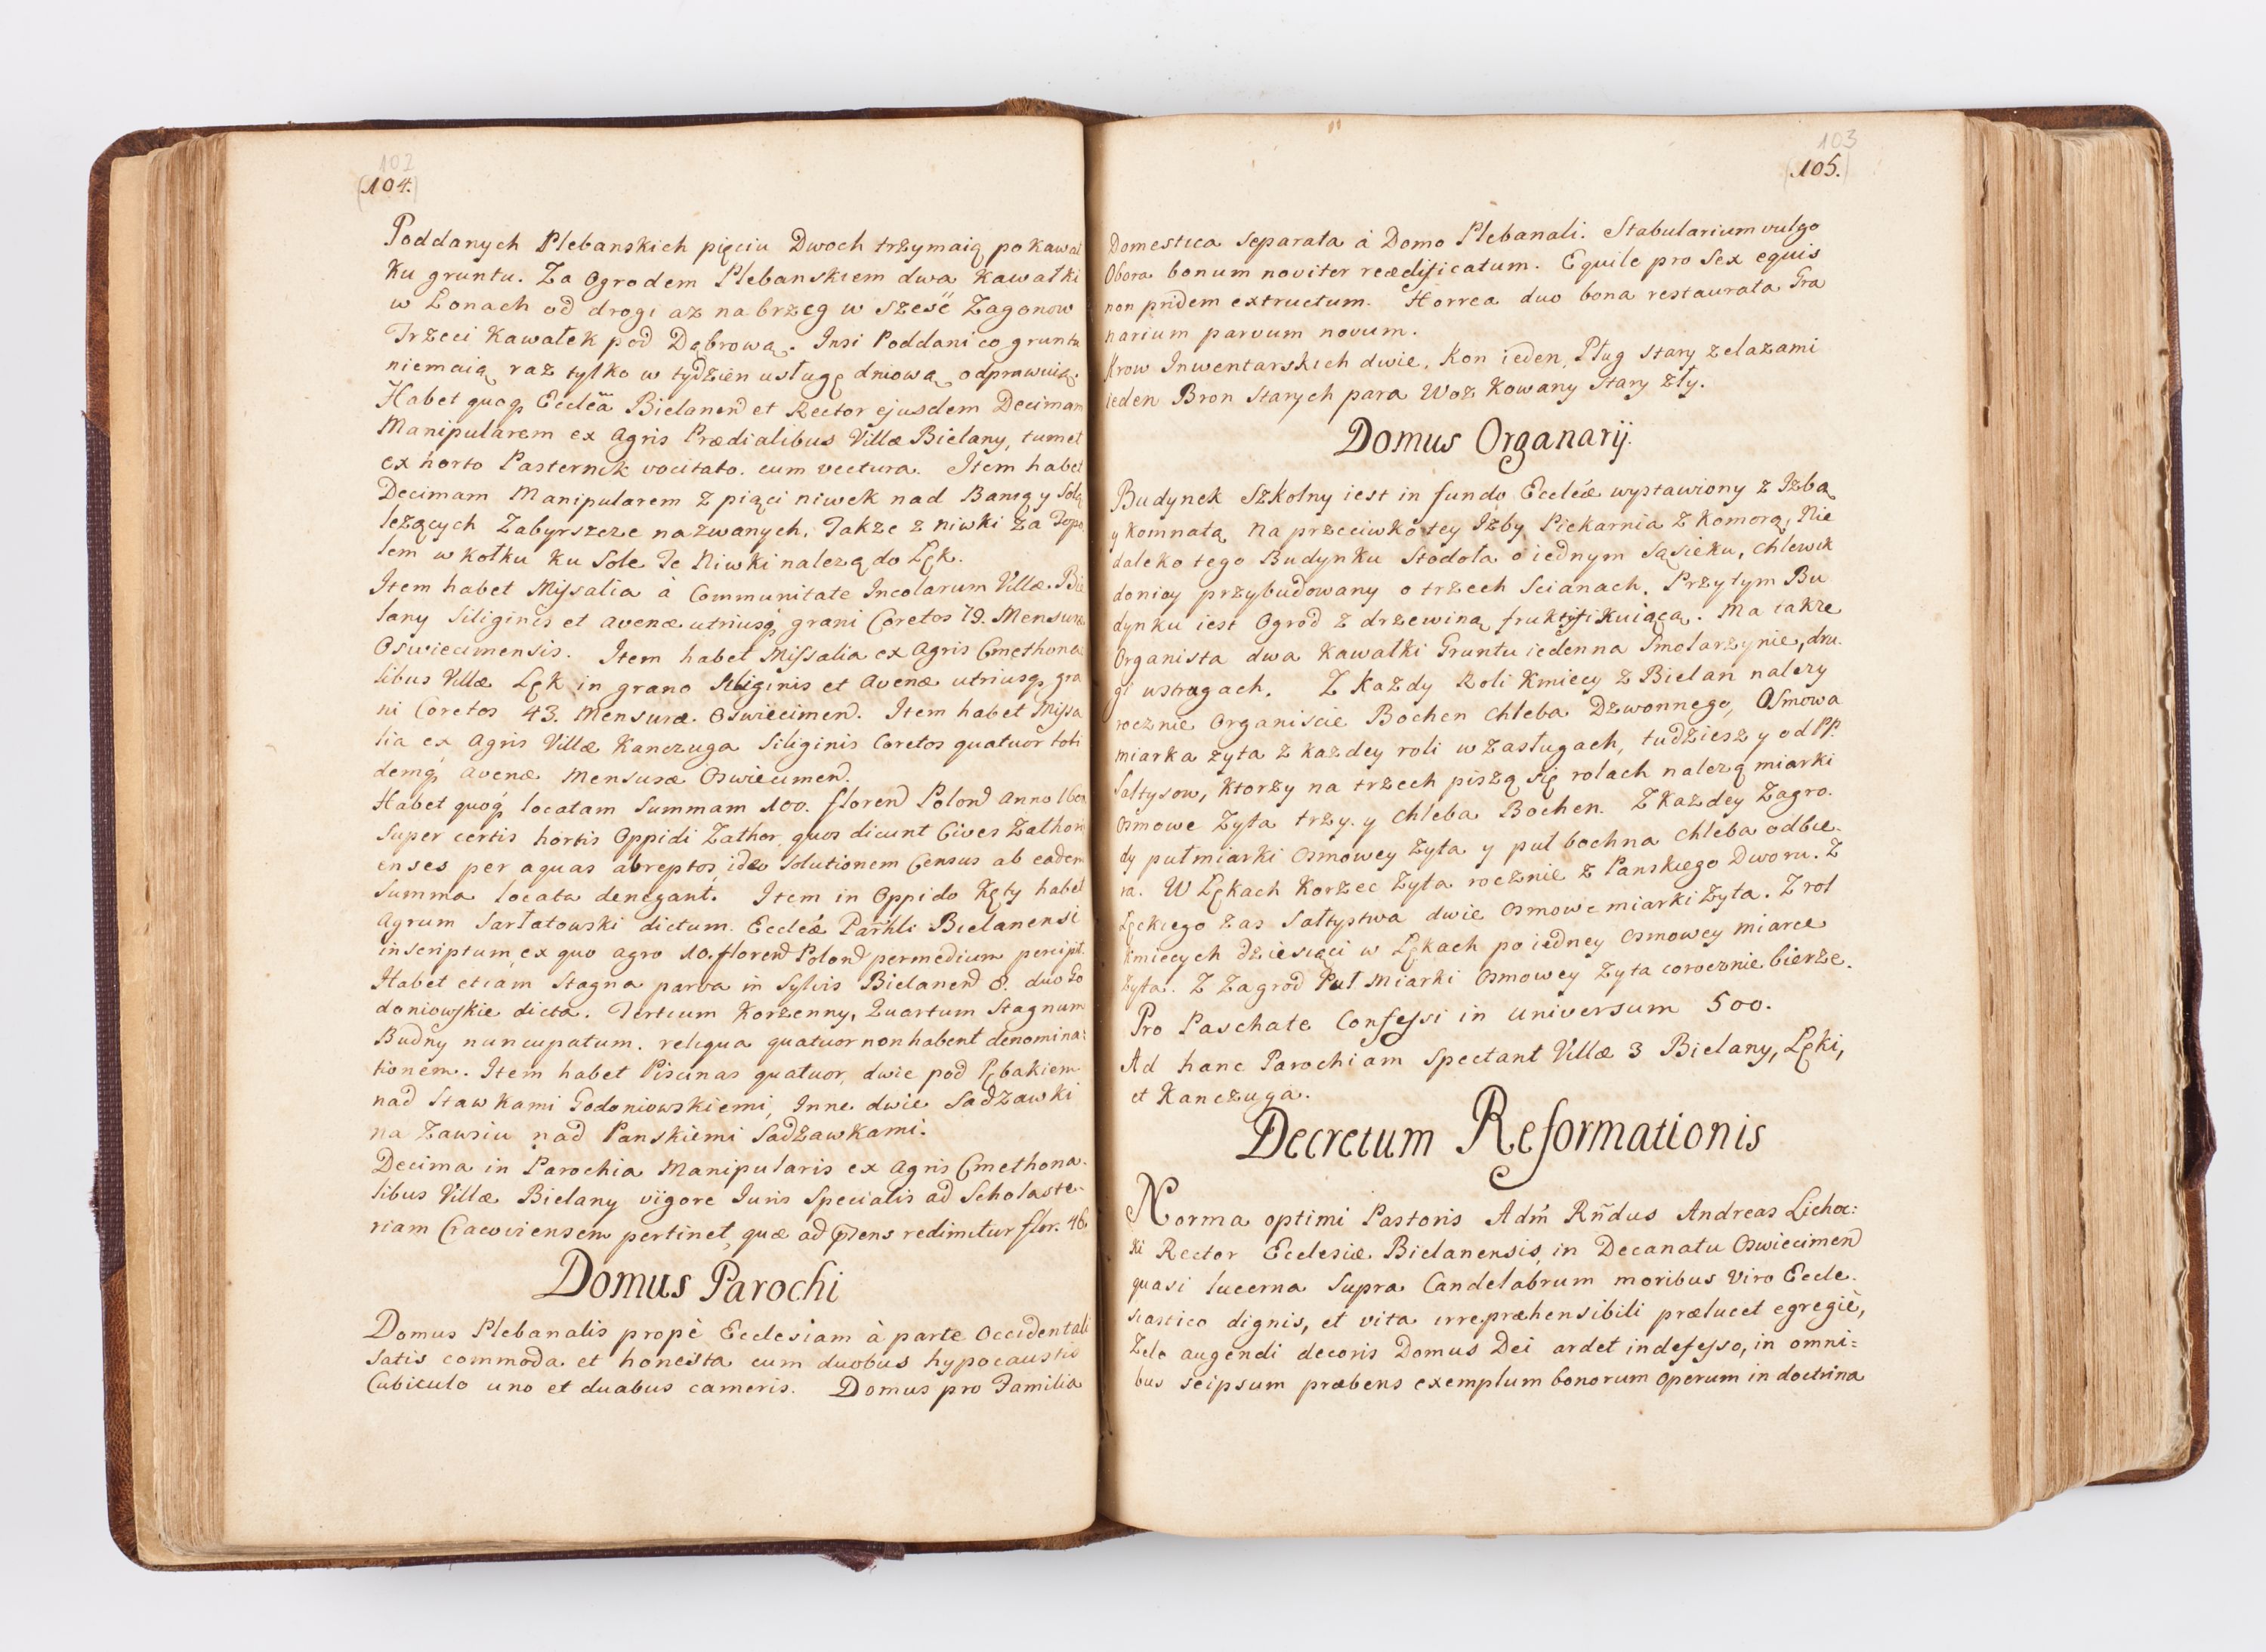 102
(104.)
Poddanych Plebanskich pięciu Dwoch trzymaią po kawał
ku gruntu. Za Ogrodem Plebanskiem dwa Kawałki
w Łonach od drogi az na brzeg w szesć Zagonow
Trzeci Kawałek pod Dąbrową. Insi Poddani co gruntu
niemaią raz tylko w tydzien usługę dniową odprawuią.
Habet quoq Eccleā Bielanen et Rector ejusdem Decimam
Manipularem ex Agris Prædialibus Villæ Bielany, tum et
ex horto Pasternik vocitato. cum vectura. Item habet
Decimam Manipularem z piąci niwek nad Banią y Solą
leżących Zabyrszcze nazwanych. Takze z niwki za Topo
lem w kołku ku Sole Te Niwki nalezą do Lęk.
Item habet Missalia à Communitate Incolarum Villæ Bie
lany Siliginis et avenæ utriusq grani Coretos 79. Mensuræ
Oswiecimensis. Item habet Missalia ex Agris Cmethona
libus Villæ Lęk in grano Siliginis et Avenæ utriusq gra
ni Coretos 43. Mensuræ Oswiecimen. Item habet Missa
lia ex Agris Villæ Kanczuga Siliginis Coretos quatuor toti
demq avenæ Mensuræ Oswiecimen.
Habet quoq locatam Summam 100. floren Polon Anno
super certis hortis Oppidi Zathor, quos dicunt Cives Zathori
enses per aquas abreptos, ideo solutionem Census ab eadem
Summa locata denegant. Item in Oppido Kęty habet
Agrum Sarłatowski dictum. Eccleæ Parhli Bielanensi
inscriptum, ex quo agro 10. floren Polon permedium percipit.
Habet etiam Stagna parva in Sylvis Bielanen 8. duo Go
doniowskie dicta. Tertium Korzenny, Quartum Stagnum
Budny nuncupatum. reliqua quatuor non habent denomina:
tionem. Item habet Piscinas quatuor, dwie pod Rębakiem
nad Stawkami Godoniowskiemi, Inne dwie Sadzawki
na Zawsiu nad Panskiemi Sadzawkami.
Decima in Parochia Manipularis ex Agris Cmethona.
libus Villæ Bielany vigore Iuris Specialis ad Scholaste-
riam Cracoviensem pertinet, quæ ad præns redimitur flor. 46
Domus Parochi
Domus Plebanalis propè Ecclesiam à parte Occidentali
satis commoda et honesta cum duobus hypocaustis
Cubiculo uno et duabus cameris. Domus pro Familia
103
(105.)
Domestica separata à Domo Plebanali. Stabularium vulgo
Obora bonum noviter reædificatum. Equile pro Sex equis
non pridem extructum. Horrea duo bona restaurata Gra
narium parvum novum.
Krow Inwentarskich dwie, Kon ieden, Pług stary zelazami
ieden Bron Starych para Woz Kowany Stary zły.
Domus Organarij.
Budynek Szkolny iest in fundo Eccleæ wystawiony z Izbą
y komnatą, na przeciwko tey Izby Piekarnia z komorą, Nie
daleko tego Budynku Stodoła o iednym sąsieku, chlewik
do niey przybudowany o trzech Scianach. Przytym Bu
dynku iest Ogrod z drzewiną fruktifikuiącą. Ma takze
Organista dwa Kawałki Gruntu ieden na Smolarzynie, dru.
gi wstrugach. Z Kazdy Roli Kmiecy z Bielan nalezy
rocznie Organiscie Bochen chleba Dzwonnego, Osmowa
miarka zyta z kazdey roli w zasługach, tudziesz y od PP:
Sałtysow, Ktorzy na trzech piszą się rolach nalezą miarki
Osmowe Zyta trzy. y Chleba Bochen. Z Kazdey Zagro.
dy puł miarki Osmowey zyta y puł bochna chleba odbie.
ra. W Lękach Korzec Zyta rocznie z Panskiego Dworu. Z
Lęckiego zas Sałtystwa dwie Osmowe miarki Zyta. Z rol
kmiecych dziesiąci w Lękach po iedney Osmowey miarce
zyta. Z Zagrod Puł Miarki Osmowey Zyta corocznie bierze.
Pro Paschate Confessi in universum 500.
Ad hanc Parochiam spectant Villæ 3 Bielany, Lęki,
et Kanczuga.
Decretum Reformationis
Norma optimi Pastoris Adm̃ Rñdus Andreas Lichoc:
ki Rector Ecclesiæ Bielanensis in Decanatu Oswiecimen
quasi lucerna Supra Candelabrum moribus Viro Eccle.
siastico dignis, et vita irrepræhensibili prælucet egregiè,
Zelo augendi decoris Domus Dei ardet indefesso, in omni:
bus seipsum præbens exemplum bonorum operum in doctrina